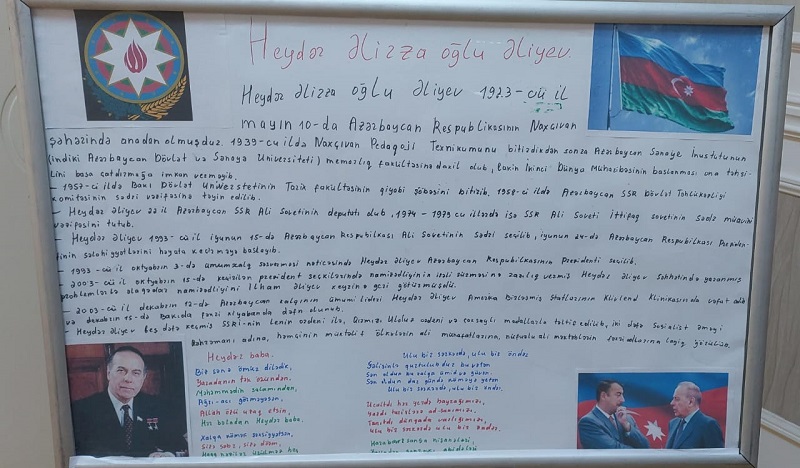 Heydər Əlirza oğlu Əliyev.
Heydər Əlirza oğlu Əliyev 1923-cü il
mayın 10-da Azərbaycan Respublikasının Naxçıvan
şəhərində anadan olmuşdur. 1939-cu ildə Naxçıvan Pedaqoji Texnikumunu bitirdikdən sonra Azərbaycan Sənaye İnustutunun
(indiki Azərbaycan Dövlət və Sənaye Universiteti) memarlıq fakültəsinə daxil olub, lakin İkinci Dünya Müharibəsinin başlanması ona təhsi-
lini başa çatdırmağa imkan verməyib.
- 1957-ci ildə Bakı Dövlət Universtetinin Tarix fakultəsinin qiyabi şöbəsini bitirib. 1958-ci ildə Azərbaycan SSR Dövlət Təhlükəsizliyi
komitəsinin sədri vəzifəsinə təyin edilib.
- Heydər Əliyev 22 il Azərbaycan SSR Ali Sovetinin deputatı olub, 1974-1979-cu illərdə isə SSR Ali Soveti İttifaq sovetinin sədr müavini
vəzifəsini tutub.
- Heydər Əliyev 1993-cü il iyunun 15-də Azərbaycan Respublikası Ali Sovetinin Sədri seçilib, iyunun 24-də Azərbaycan Respublikası Preziden-
tinin səlahiyyətlərini həyata keçirməyə başlayıb.
- 1993-cü il oktyabrın 3-də ümumxalq səsverməsi nəticəsində Heydər Əliyev Azərbaycan Respublikasının Prezidenti seçilib.
- 2003-cü il oktyabrın 15-də keçirilən prezident seçkilərində namizədliyinin irəli sürməsinə razılıq vermiş Heydər Əliyev səhhətində yaranmış
problemlərlə əlaqədar namizədliyini İlham Əliyev xeyrinə geri götürmüşdü.
- 2003-cü il dekabrın 12-də Azərbaycan xalqının ümumi lideri Heydər Əliyev Amerika Birləşmiş Ştatlarının Klivlend Klinikasında vəfat edib
və dekabrın 15-də Bakıda Fəxri xiyabanda dəfn olunub.
Heydər Əliyev beş dəfə keçmiş SSRİ-nin Lenin ordeni ilə, Qırmızı Ulduz ordeni və çoxsaylı medallarla təltif edilib, iki dəfə Sosialist Əməyi
Qəhrəmanı adına, həmçinin müxtəlif ölkələrin ali mükafatlarına, nüfuzlu ali məktəblərin fəxri adlarına layiq görülüb.
Heydər baba.
Bir sənə ömür dilədik,
Yaradanın tək özündən,
Məhəmmədin kəlamından,
Ağrı-acı görməyəsən,
Allah özü uzaq etsin,
Hər bəladan Heydər baba.
Xalqa hörmət
Sizə səbr, sizə dözüm,
Ulu biz sərkərdə, ulu bir öndər
Gəlişinlə qurtuldu bu vətən
Sən oldun bu xalqa ümidə güvən
Ulu bir sərkərdə, ulu bir öndər,
Ucaltdı hər yerdə bayrağımızı,
Yazdı tarixlərə ad-sanımızı,
Tanıtdı dünyada varlığımızı,
Ulu bir sərkərdə ulu bir öndər.